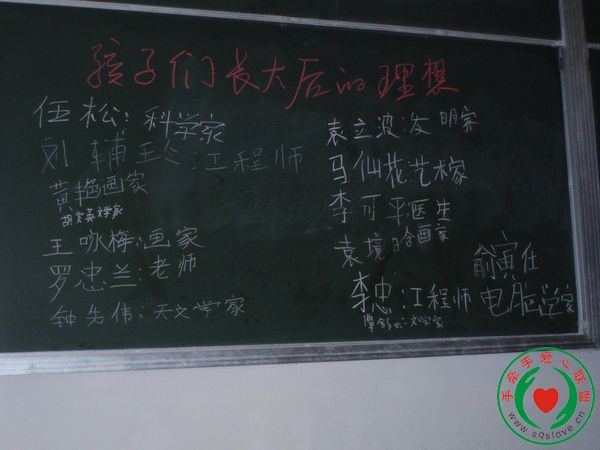 孩子们长大后的理想
伍松：科学家
刘辅：工程师
黄艳画家
文学家
王咏梅：画家
罗忠兰：老师
钟先伟：天文学家
袁立波：发明家
马仙花：艺术家
李可平医生
袁境画家
李忠：工程师
文学家
俞寅任
电脑学家
手牵手爱心联盟
www.sqslove.cn